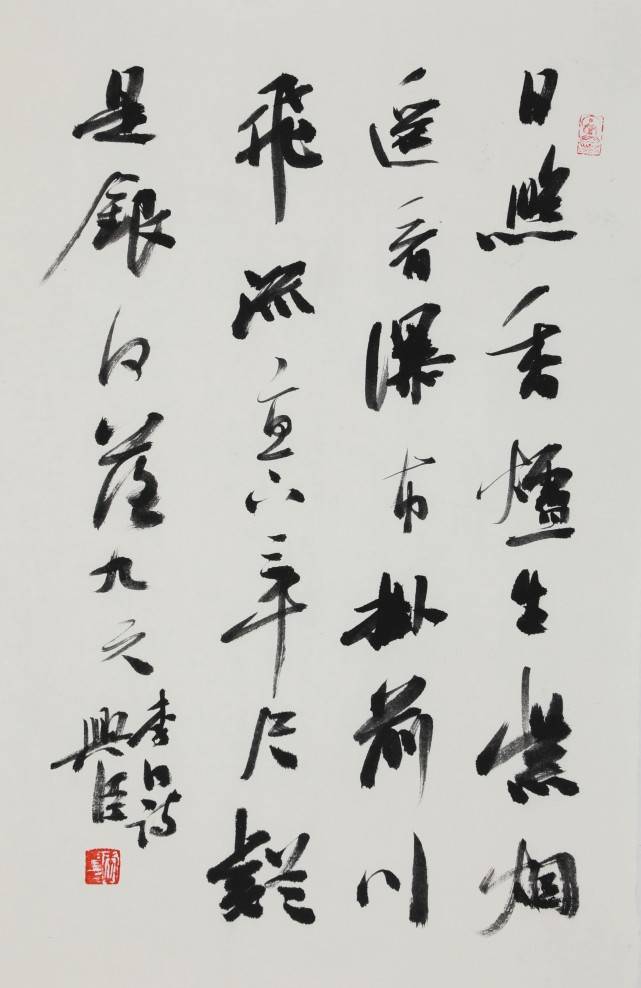 日照香爐生紫烟
遥看瀑布掛前川
飛流直下三千尺疑
是銀河落九天
李白詩
興臣